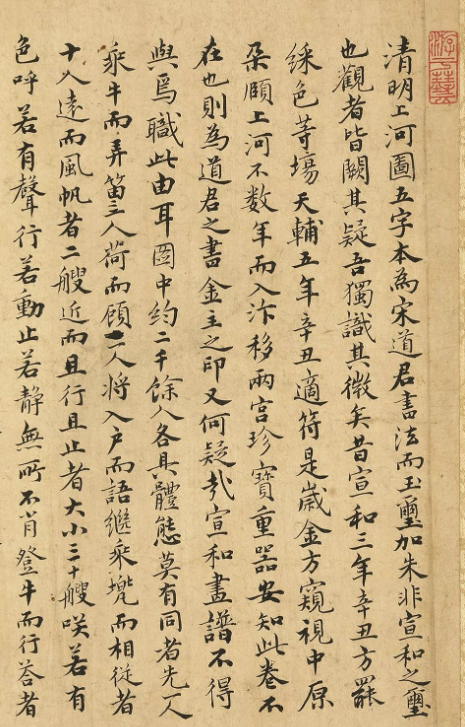 清明上河圖五字本為宋道君書法而玉璽加朱非宣和之璽
也觀者皆闕其疑吾獨識其微矣昔宣和三年辛丑方羅
綵色等塲天輔五年辛丑適符是歲金方窺視中原
朶頤上河不数年而入汴移兩宫珍寶重器安知此卷不
在也則為道君之書金主之印又何疑㢤宣和畫譜不得
與焉職此由耳圖中約二千餘人各具體態莫有同者先一人
乘牛而弄笛三人荷而顧一人將入户而語繼乘㙙而相從者
十人遠而風帆者二艘近而且行且止者大小三十艘咲若有
色呼若有聲行若動止若静無所不肖登牛而行荅者